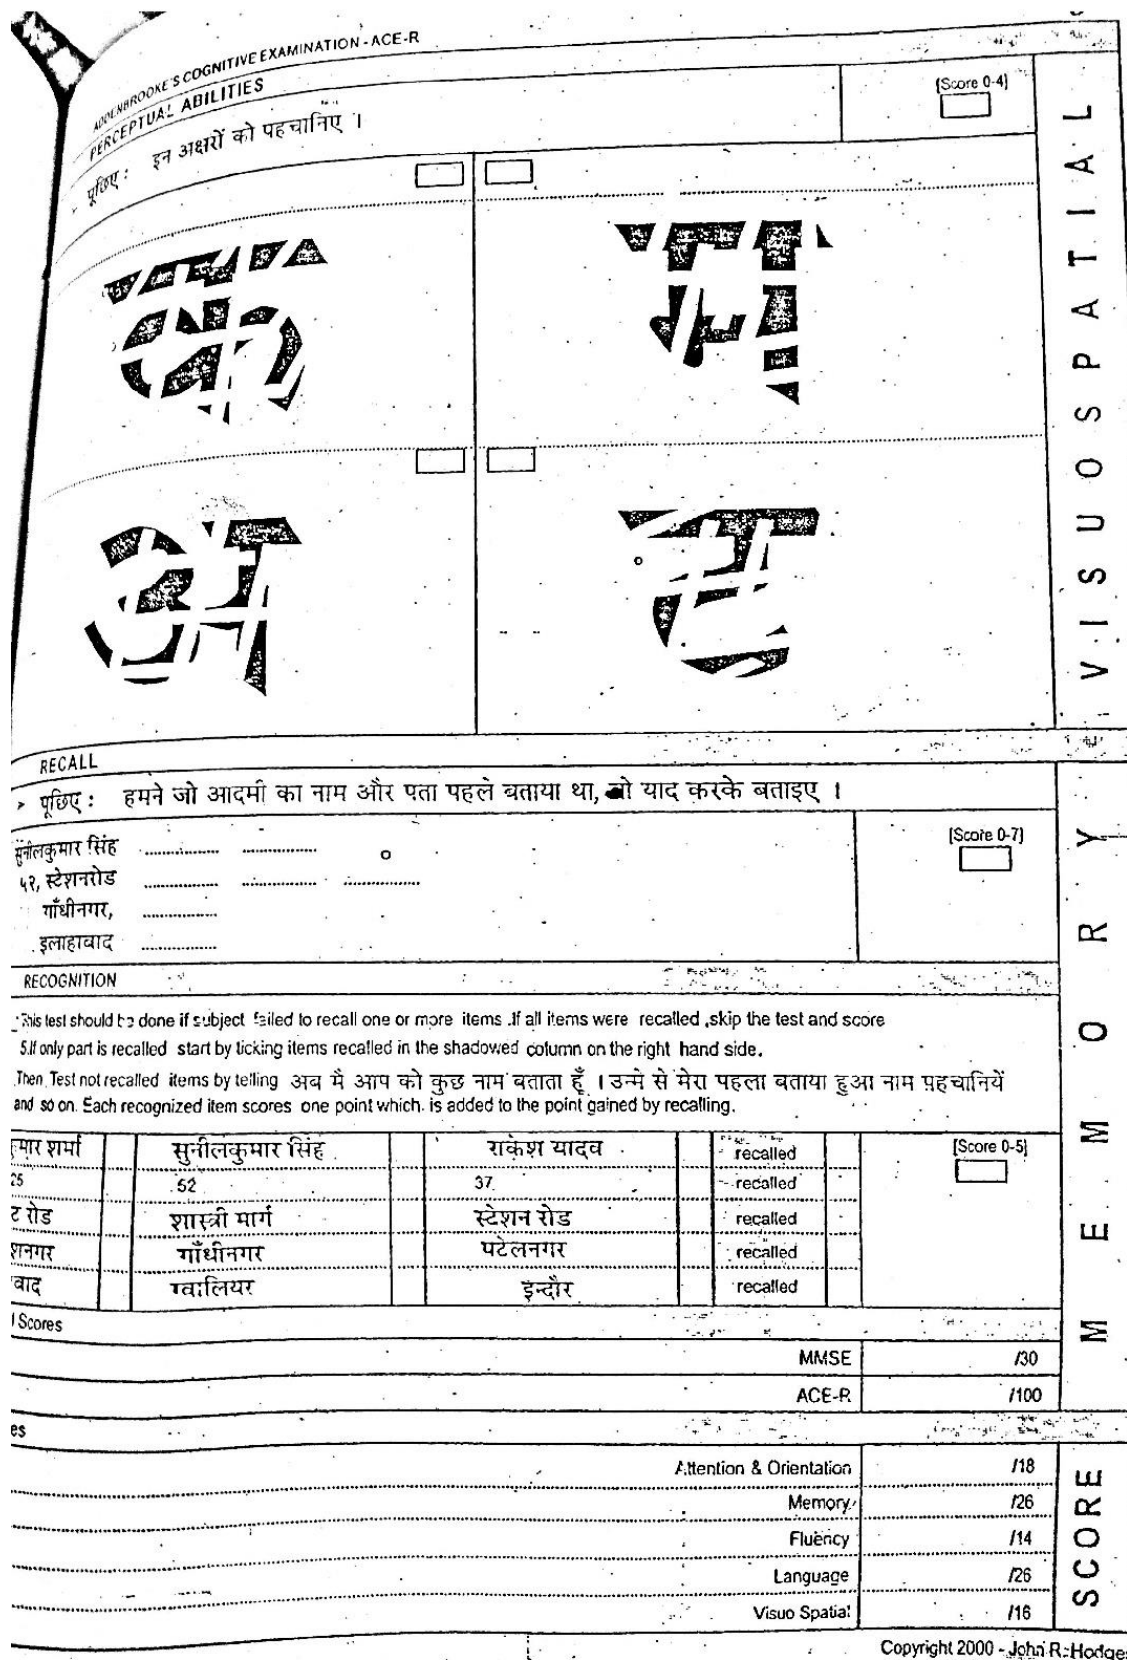 ADDENBROOKE'S COGNITIVE EXAMINATION - ACE-R
PERCEPTUAL ABILITIES
[Score 0-4]
पूछिए : इन अक्षरों को पहचानिए ।
क
म
अ
ट
VISUOSPATIAL
RECALL
पूछिए : हमने जो आदमी का नाम और पता पहले बताया था, वो याद करके बताइए ।
[Score 0-7]
सुनीलकुमार सिंह
५२, स्टेशनरोड
गाँधीनगर,
इलाहाबाद
RECOGNITION
This test should be done if subject failed to recall one or more items .If all items were recalled ,skip the test and score
5.If only part is recalled start by ticking items recalled in the shadowed column on the right hand side.
Then Test not recalled items by telling अब मै आप को कुछ नाम बताता हूँ । उन्मे से मेरा पहला बताया हुआ नाम पहचानियें
and so on. Each recognized item scores one point which is added to the point gained by recalling.
मार शर्मा सुनीलकुमार सिंह राकेश यादव recalled [Score 0-5]
25 52 37 recalled
ट रोड शास्त्री मार्ग स्टेशन रोड recalled
शनगर गाँधीनगर पटेलनगर recalled
वाद ग्वालियर इन्दौर recalled
MEMORY
l Scores
MMSE /30
ACE-R /100
es
Attention & Orientation /18
Memory /26
Fluency /14
Language /26
Visuo Spatial /16
SCORE
Copyright 2000 - John R. Hodges